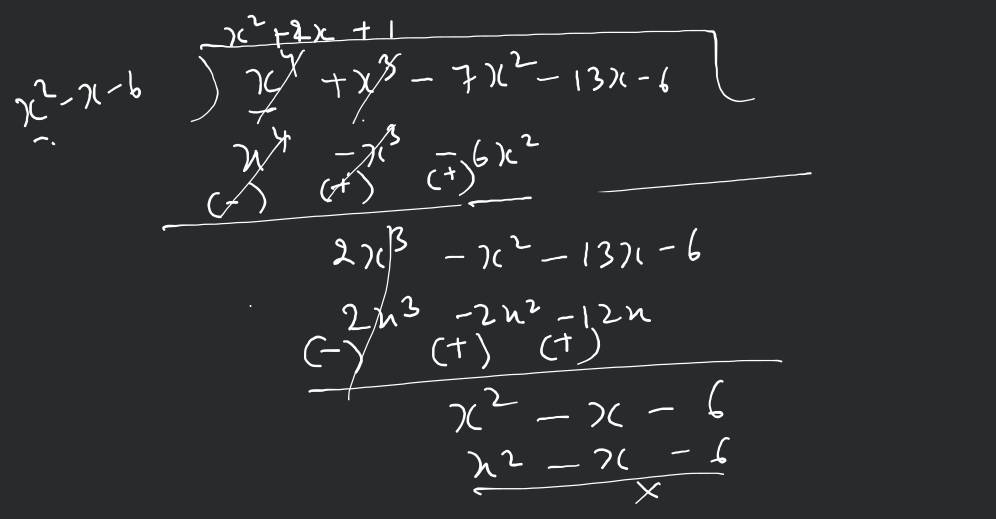 x² + 2x + 1
x² - x - 6 ) x⁴ + x³ - 7x² - 13x - 6
x⁴ - x³ - 6x²
(-) (+) (+)
2x³ - x² - 13x - 6
2x³ - 2x² - 12x
(-) (+) (+)
x² - x - 6
x² - x - 6
x